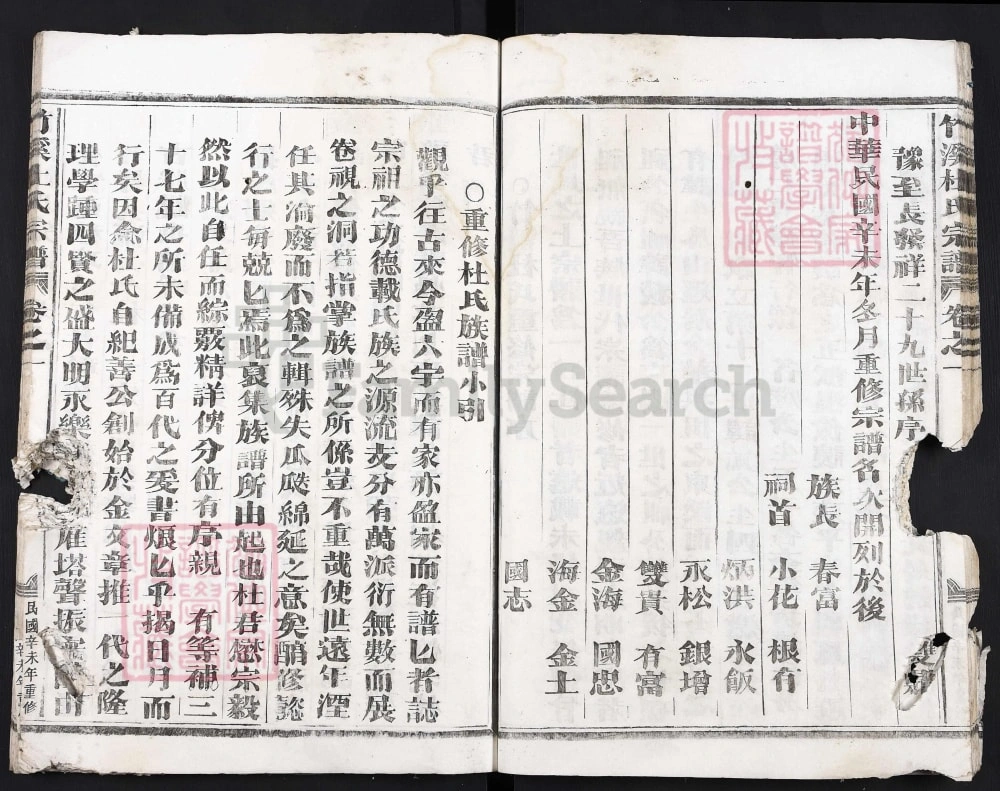 竹溪杜氏宗譜 卷之一
豫呈長發祥二十九世孫序
中華民國辛未年冬月重修宗譜名次開列於後
族長 春富
祠首 小花 根有
炳洪 水飯
永松 銀增
雙貴 有富
金海 國忠
海金 金土
國志
〇重修杜氏族譜小引
觀乎往古來今盈六宇而有家亦盈家而有譜匕者誌
宗祖之功德載氏族之源流支分有萬派衍無數而展
卷視之洞若指掌族譜之所係豈不重哉使世遠年湮
任其淪廢而不為之輯殊失瓜瓞綿延之意矣
行之士每兢匕焉此裒集族譜所由起也杜君懋宗毅
然以此自任而綜覈精詳俾分位有序親 有等補三
十七年之所未備成為百代之爰書煨匕乎揭日月而
行矣因念杜氏自祀善公創始於金文章推一代之隆
理學踵四賢之盛大明永樂 雁塔聲振
竹溪杜氏宗譜 卷之一
民國辛未年重修
FamilySearch